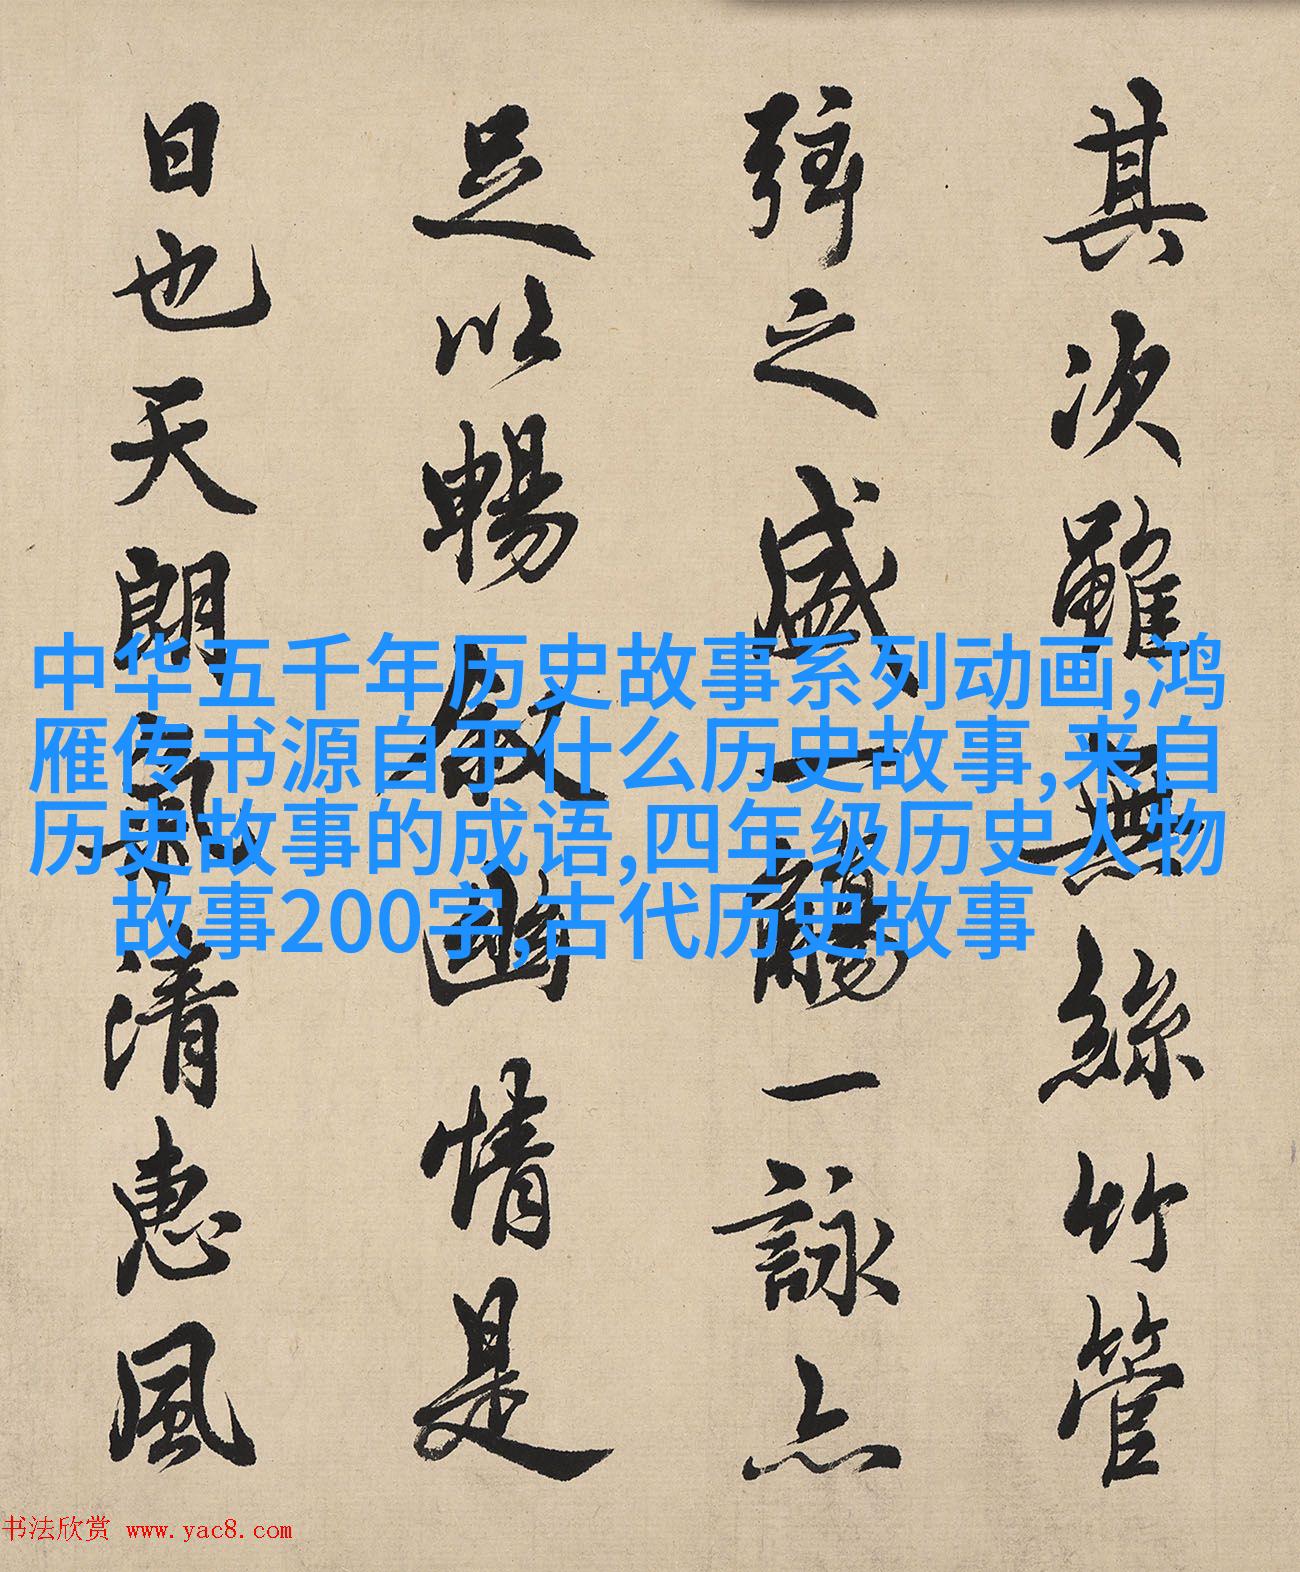 其次雖無絲竹管
弦之盛一觴一詠亦
足以暢叙幽情是
日也天朗氣清惠風
中华五千年历史故事系列动画,鸿
雁传书源自于什么历史故事,来自
历史故事的成语,四年级历史人物
故事200字,古代历史故事
书法欣赏 www.yac8.com